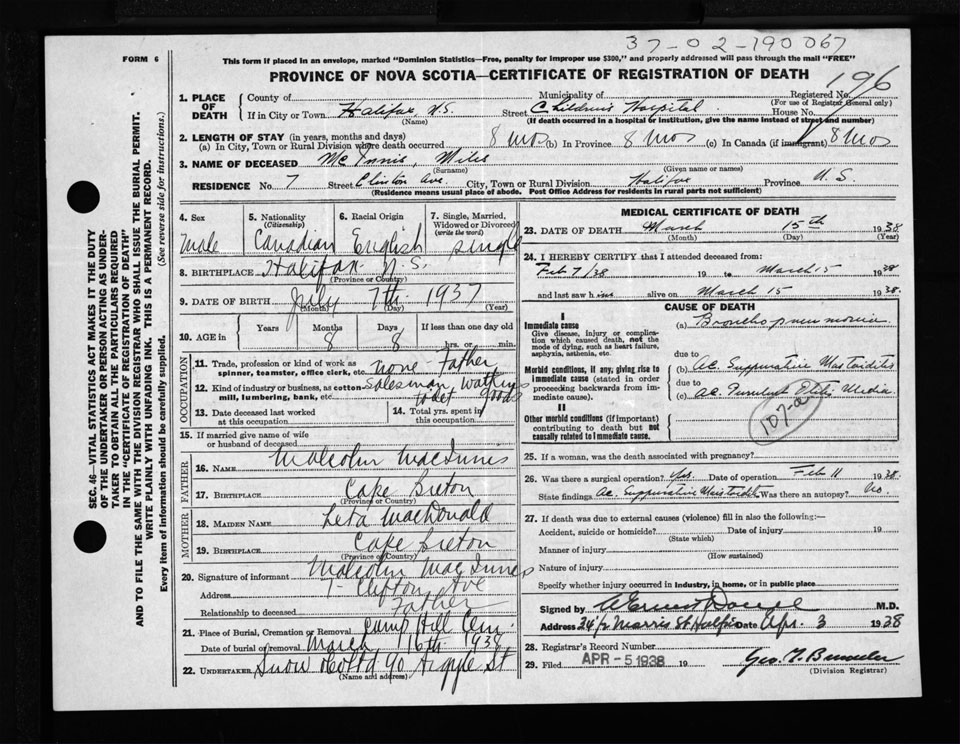 37-02-190067
FORM 6
This form if placed in an envelope, marked "Dominion Statistics—Free, penalty for improper use $300," and properly addressed will pass through the mail "FREE"
PROVINCE OF NOVA SCOTIA—CERTIFICATE OF REGISTRATION OF DEATH
196
1. PLACE OF DEATH
County of
Municipality of
Registered No.
(For use of Registrar General only)
If in City or Town Halifax, N.S. Street Childrens Hospital House No.
(Name) (If death occurred in a hospital or institution, give the name instead of street and number)
2. LENGTH OF STAY (in years, months and days)
(a) In City, Town or Rural Division where death occurred 8 mos (b) In Province 8 mos (c) In Canada (if immigrant) 8 mos
3. NAME OF DECEASED McInnis, Miles
(Surname) (Given name or names)
RESIDENCE No. 7 Street Clinton Ave. City, Town or Rural Division Halifax Province N.S.
(Residence means usual place of abode. Post Office Address for residents in rural parts not sufficient)
4. Sex Male
5. Nationality (Citizenship) Canadian
6. Racial Origin English
7. Single, Married, Widowed or Divorced (write the word) single
8. BIRTHPLACE Halifax N.S.
(Province or Country)
9. DATE OF BIRTH July 7th 1937
(Month) (Day) (Year)
10. AGE in Years Months 8 Days 8 If less than one day old hrs. or min.
OCCUPATION
11. Trade, profession or kind of work as spinner, teamster, office clerk, etc. none - Father
12. Kind of industry or business, as cotton mill, lumbering, bank, etc. Salesman, Watkins toilet goods
13. Date deceased last worked at this occupation
14. Total yrs. spent in this occupation
15. If married give name of wife or husband of deceased
FATHER
16. NAME Malcolm MacInnis
17. BIRTHPLACE Cape Breton
(Province or Country)
MOTHER
18. MAIDEN NAME Leta MacDonald
19. BIRTHPLACE Cape Breton
(Province or Country)
20. Signature of informant Malcolm MacInnes
Address 7 Clifton Ave
Relationship to deceased Father
21. Place of Burial, Cremation or Removal Camp Hill Cem.
Date of burial or removal March 16th 1938
22. UNDERTAKER Snow & Co Ltd 90 Argyle St
(Name and address)
MEDICAL CERTIFICATE OF DEATH
23. DATE OF DEATH March 15th 1938
(Month) (Day) (Year)
24. I HEREBY CERTIFY that I attended deceased from:
Feb 7/38 19 to March 15 1938
and last saw him alive on March 15 1938.
CAUSE OF DEATH
I
Immediate cause
Give disease, injury or complication which caused death, not the mode of dying, such as heart failure, asphyxia, asthenia, etc.
(a) Broncho pneumonia
due to
Morbid conditions, if any, giving rise to immediate cause (stated in order proceeding backwards from immediate cause).
(b) Ac. Suppurative Mastoiditis
due to
(c) Ac. Purulent Otitis Media
107-a
II
Other morbid conditions (if important) contributing to death but not causally related to immediate cause.
25. If a woman, was the death associated with pregnancy?
26. Was there a surgical operation? Yes. Date of operation Feb 11 1938.
State findings Ac. Suppurative Mastoiditis Was there an autopsy? No
27. If death was due to external causes (violence) fill in also the following:—
Accident, suicide or homicide? Date of injury 19
(State which)
Manner of injury
(How sustained)
Nature of injury
Specify whether injury occurred in industry, in home, or in public place
Signed by M.D.
Address 34½ Morris St Halifax Date Apr. 3 1938
28. Registrar's Record Number
29. Filed APR - 5 1938 19
(Division Registrar)
SEC. 46—VITAL STATISTICS ACT MAKES IT THE DUTY
OF THE UNDERTAKER OR PERSON ACTING AS UNDER-
TAKER TO OBTAIN ALL THE PARTICULARS REQUIRED
IN THE "CERTIFICATE OF REGISTRATION OF DEATH"
AND TO FILE THE SAME WITH THE DIVISION REGISTRAR WHO SHALL ISSUE THE BURIAL PERMIT.
WRITE PLAINLY WITH UNFADING INK. THIS IS A PERMANENT RECORD.
Every item of information should be carefully supplied. (See reverse side for instructions.)